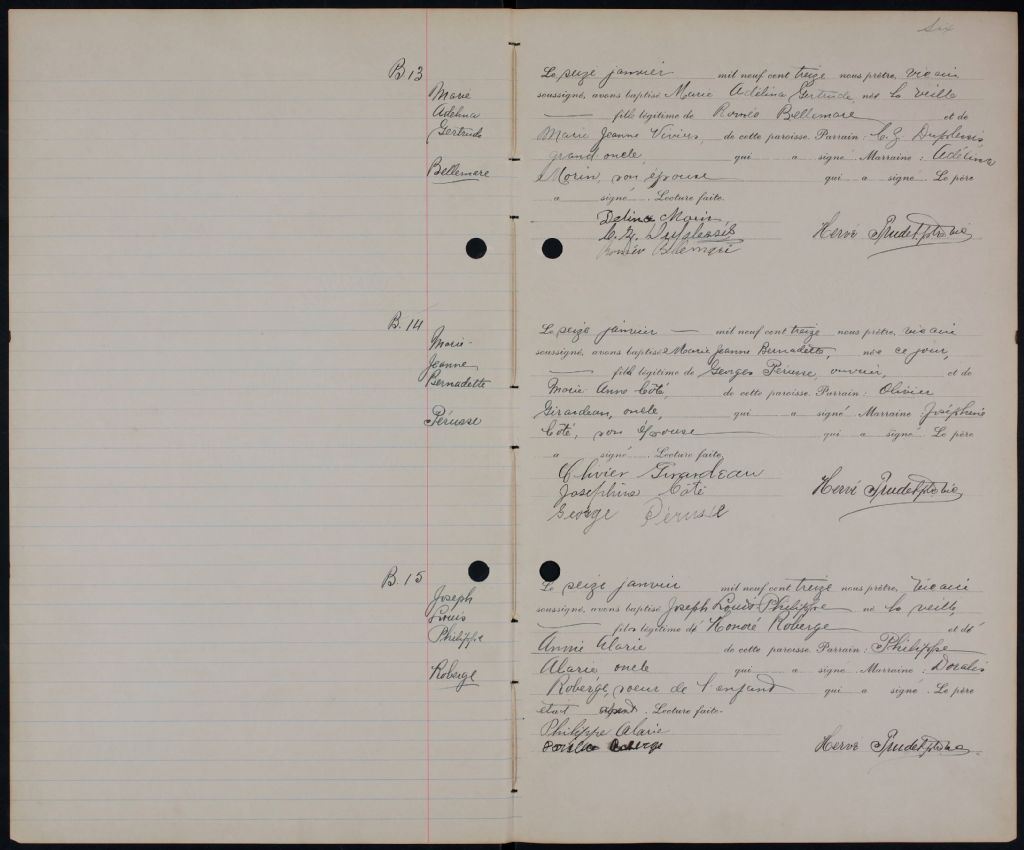 Six
B 13
Marie
Adelina
Gertrude
Bellemare
Le seize janvier mil neuf cent treize nous prêtre, vicaire
soussigné, avons baptisé Marie Adelina Gertrude, née la veille
fille légitime de Roméo Bellemare et de
Marie Jeanne Viviers, de cette paroisse. Parrain: C. Z. Duplessis
grand oncle, qui a signé. Marraine: Adélina
Morin, son épouse qui a signé. Le père
a signé. Lecture faite.
Delina Morin
C. Z. Duplessis
Roméo Bellemare
Hervé Prudel ptre vic
B. 14
Marie-
Jeanne
Bernadette
Pérusse
Le seize janvier mil neuf cent treize nous prêtre, vicaire
soussigné, avons baptisé Marie Jeanne Bernadette, née ce jour,
fille légitime de Georges Pérusse, ouvrier, et de
Marie Anne Côté, de cette paroisse. Parrain: Olivier
Girardeau, oncle, qui a signé. Marraine: Joséphine
Côté, son épouse qui a signé. Le père
a signé. Lecture faite.
Olivier Girardeau
Josephine Côté
George Pérusse
Hervé Prudel ptre vic
B. 15
Joseph
Louis
Philippe
Roberge
Le seize janvier mil neuf cent treize nous prêtre, vicaire
soussigné, avons baptisé Joseph Louis Philippe né la veille,
fils légitime de Honoré Roberge et de
Annie Alarie de cette paroisse. Parrain: Philippe
Alarie oncle qui a signé. Marraine: Doralis
Roberge, soeur de l'enfant qui a signé. Le père
était absent. Lecture faite.
Philippe Alarie
Roberge
Hervé Prudel ptre vic